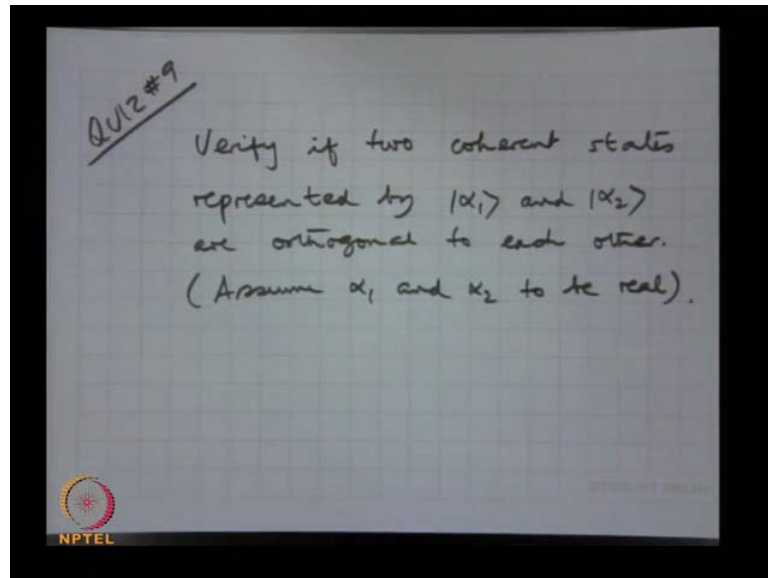 QUIZ #9
Verify if two coherent states
represented by |α₁⟩ and |α₂⟩
are orthogonal to each other.
(Assume α₁ and α₂ to be real).
NPTEL